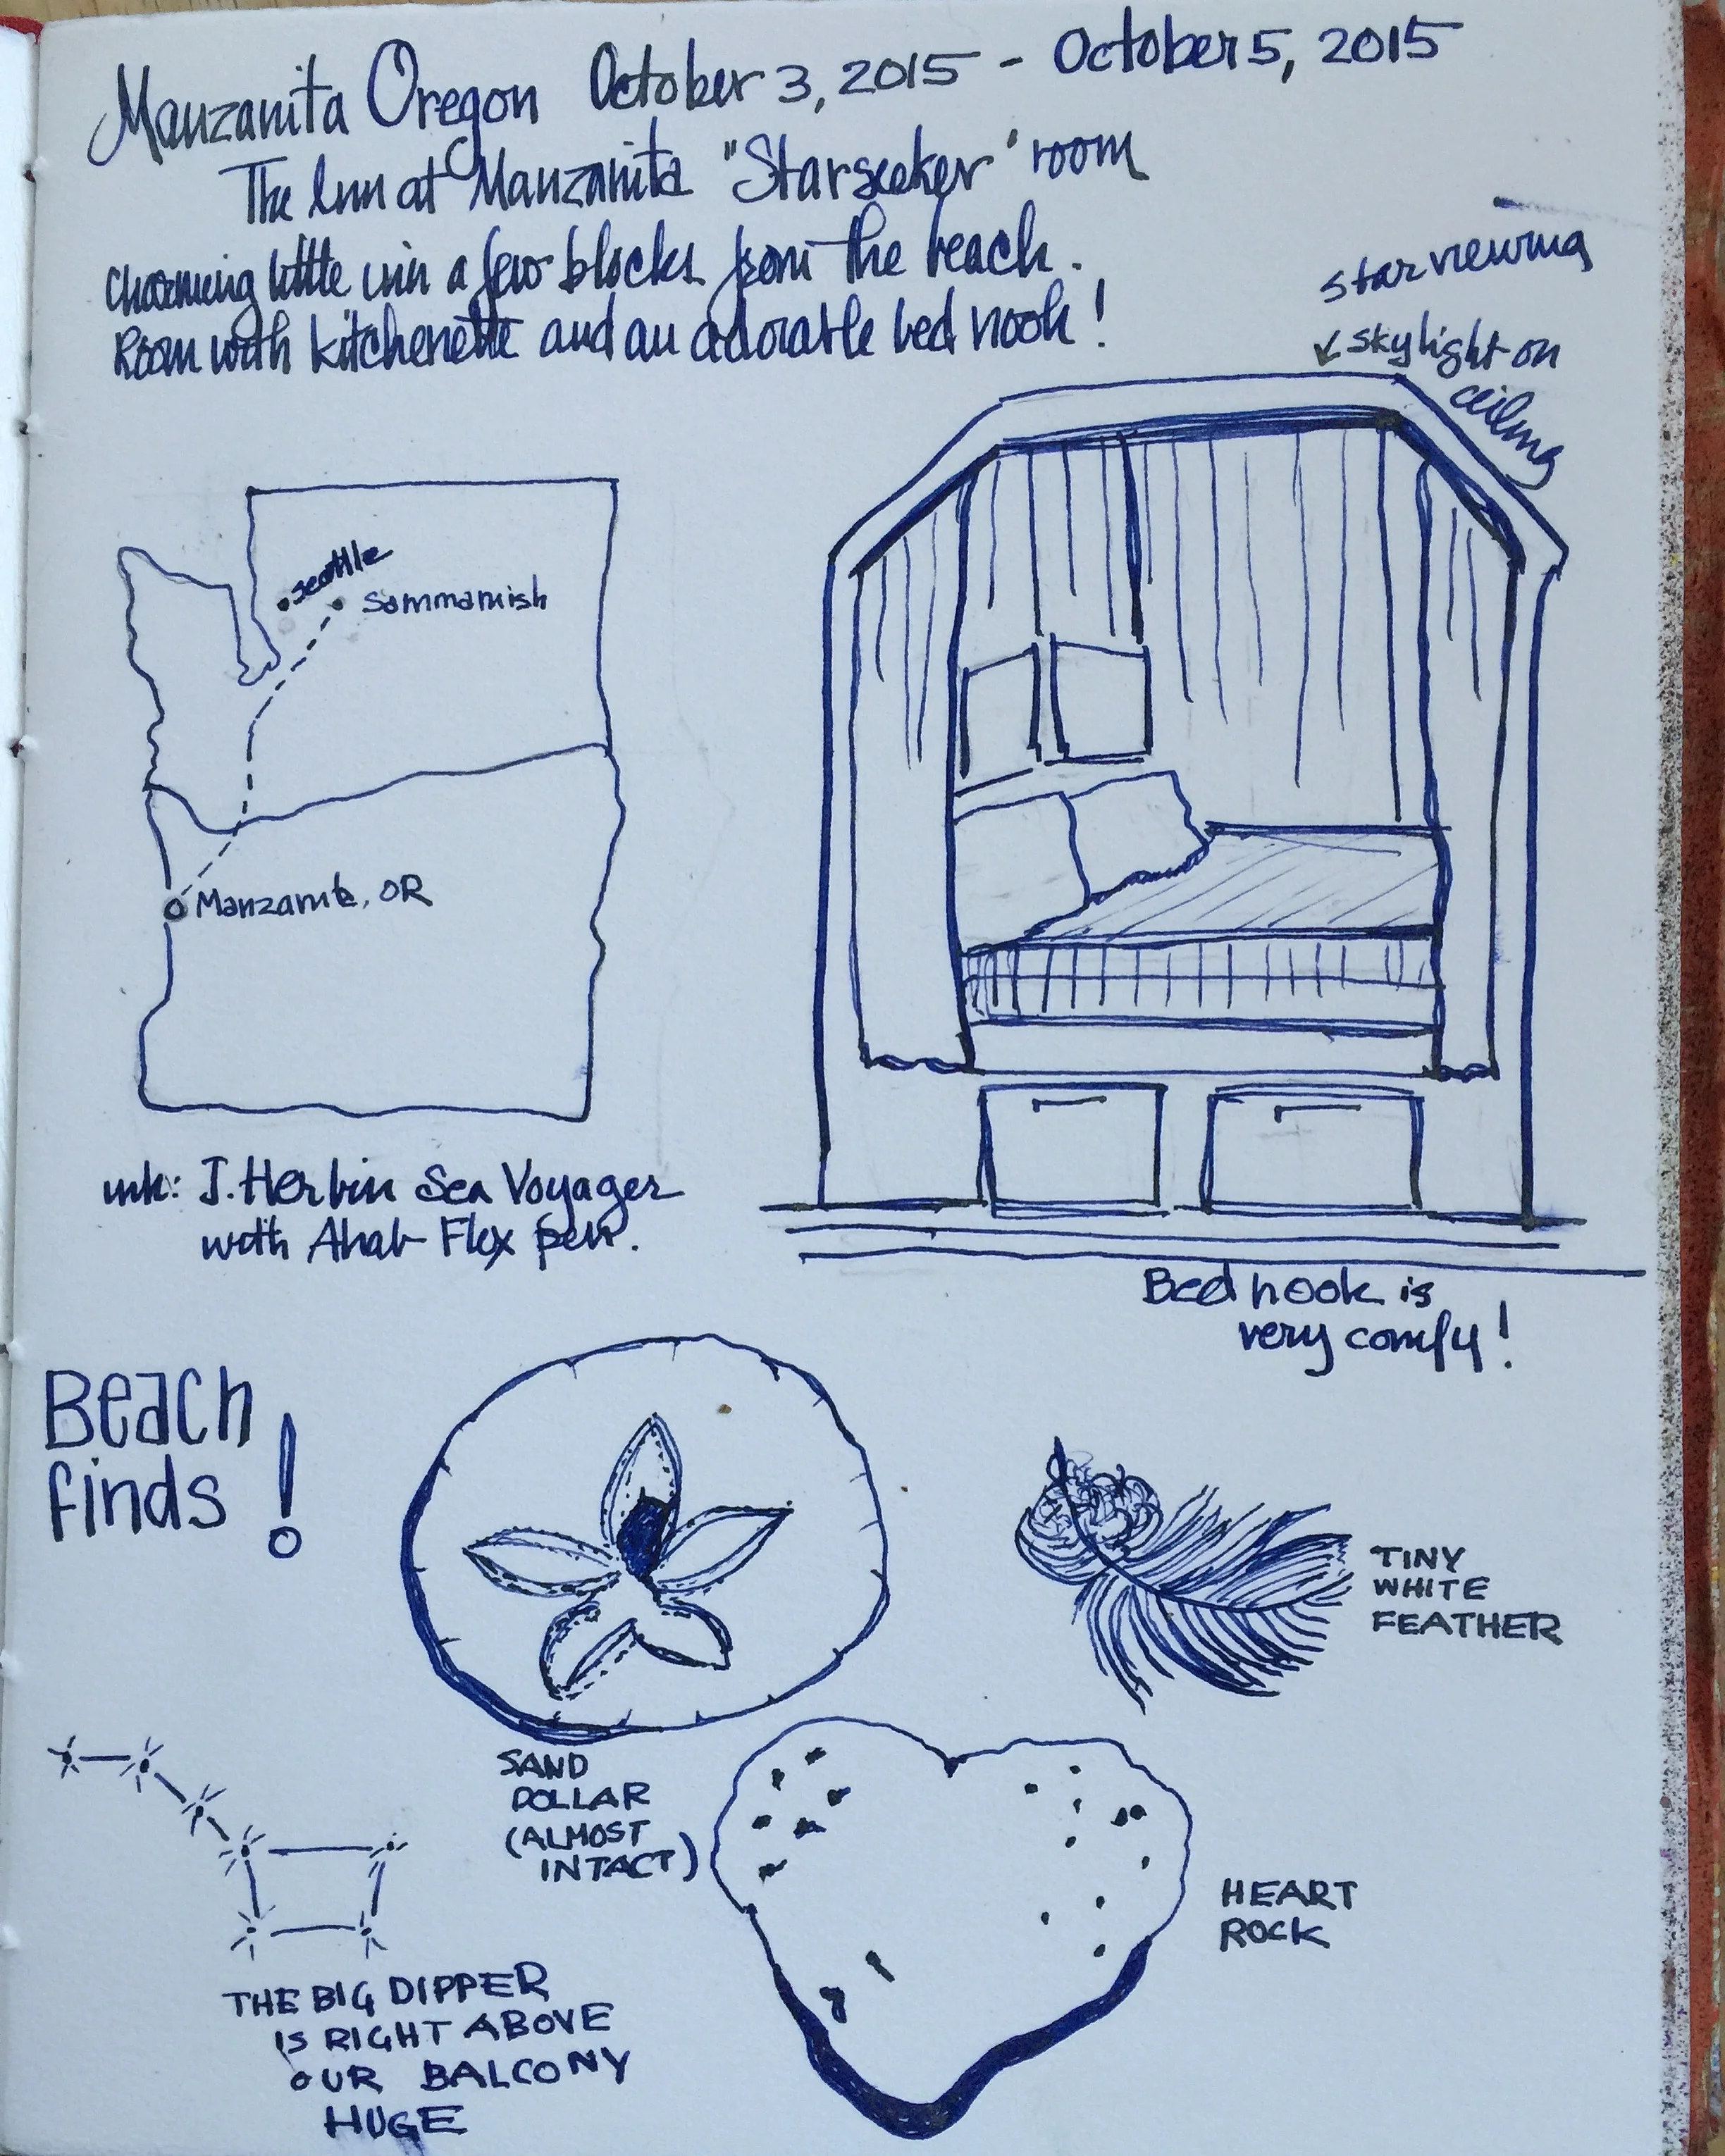 Manzanita Oregon October 3, 2015 - October 5, 2015
The Inn at Manzanita "Starseeker" room
Charming little inn a few blocks from the beach.
Room with kitchenette and an adorable bed nook!
star viewing
↙ skylight on
ceiling
Seattle
Sammamish
Manzanita, OR
ink: J. Herbin Sea Voyager
with Ahab Flex pen.
Bed nook is
very comfy!
Beach
finds!
TINY
WHITE
FEATHER
SAND
DOLLAR
(ALMOST
INTACT)
HEART
ROCK
THE BIG DIPPER
IS RIGHT ABOVE
OUR BALCONY
HUGE